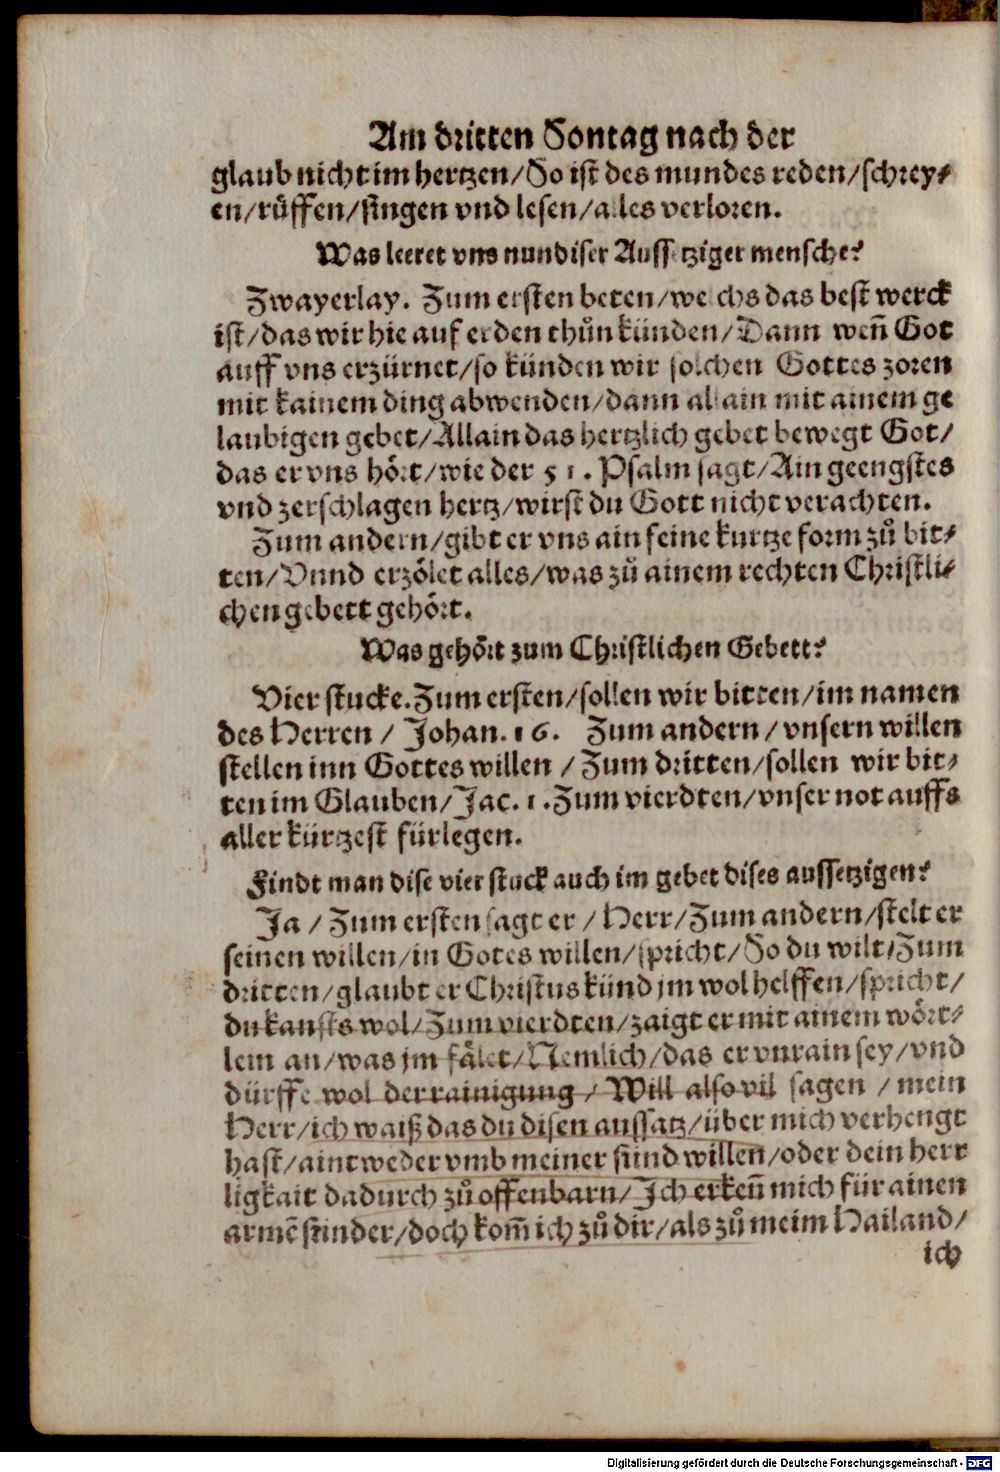 Am dritten Sontag nach der
glaub nicht im hertzen/So ist des mundes reden/schrey-
en/růffen/singen vnd lesen/alles verloren.
Was leeret vns nun diser Aussetziger mensche?
Zwayerlay. Zum ersten beten/welchs das best werck
ist/das wir hie auf erden thůn künden/Dann weñ Got
auff vns erzürnet/so künden wir solchen Gottes zoren
mit kainem ding abwenden/dann allain mit ainem ge
laubigen gebet/Allain das hertzlich gebet bewegt Got/
das er vns hört/wie der 51. Psalm sagt/Ain geengstes
vnd zerschlagen hertz/wirst du Gott nicht verachten.
Zum andern/gibt er vns ain feine kurtze form zů bit-
ten/Vnnd erzölet alles/was zů ainem rechten Christli-
chen gebett gehört.
Was gehört zum Christlichen Gebett?
Vier stucke. Zum ersten/sollen wir bitten/im namen
des Herren / Johan. 16. Zum andern/vnsern willen
stellen inn Gottes willen / Zum dritten/sollen wir bit-
ten im Glauben/Jac. 1. Zum vierdten/vnser not auffs
aller kürtzest fürlegen.
Findt man dise vier stuck auch im gebet dises aussetzigen?
Ja / Zum ersten sagt er / Herr/Zum andern/stelt er
seinen willen/in Gotes willen/spricht/So du wilt/Zum
dritten/glaubt er Christus künd jm wol helffen/spricht/
du kansts wol/Zum vierdten/zaigt er mit ainem wört-
lein an/was jm fälet/Nemlich/das er vnrain sey/vnd
dürffe wol der rainigung/ Will also vil sagen / mein
Herr/ich waiß das du disen aussatz/über mich verhengt
hast/aintweder vmb meiner sünd willen/oder dein herr
ligkait dadurch zů offenbarn/Ich erkeñ mich für ainen
armē sünder/doch kom̃ ich zů dir/als zů meim Hailand/
ich
Digitalisierung gefördert durch die Deutsche Forschungsgemeinschaft - DFG